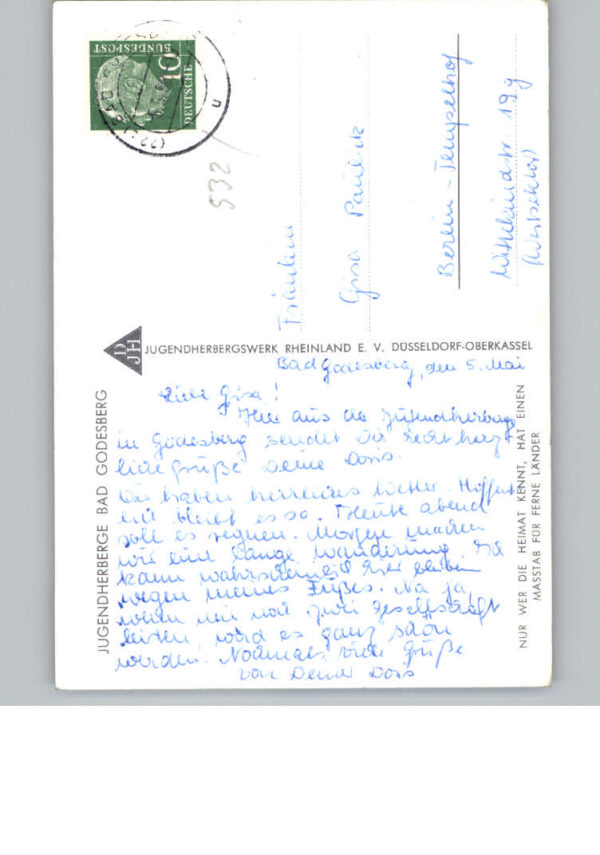 DEUTSCHE
BUNDESPOST
10
532
Fräulein
Gisa
Berlin-Tempelhof
Wittekindstr. 19g
(Westsektor)
DJH
JUGENDHERBERGSWERK RHEINLAND E. V. DÜSSELDORF-OBERKASSEL
JUGENDHERBERGE BAD GODESBERG
NUR WER DIE HEIMAT KENNT, HAT EINEN
MASSTAB FÜR FERNE LÄNDER
Bad Godesberg, den 5. Mai
Liebe Gisa!
Hier aus der Jugendherberge
in Godesberg sendet Dir recht herz-
liche Grüße Deine Doris.
Wir haben herrliches Wetter. Hoffent-
lich bleibt es so. Heute abend
soll es regnen. Morgen machen
wir eine lange Wanderung. Ich
kann wahrscheinlich hier bleiben
wegen meines Fußes. Na ja,
wenn mir nur zwei Gesellschaft
leisten, wird es ganz schön
werden. Nochmals viele Grüße
von Deiner Doris